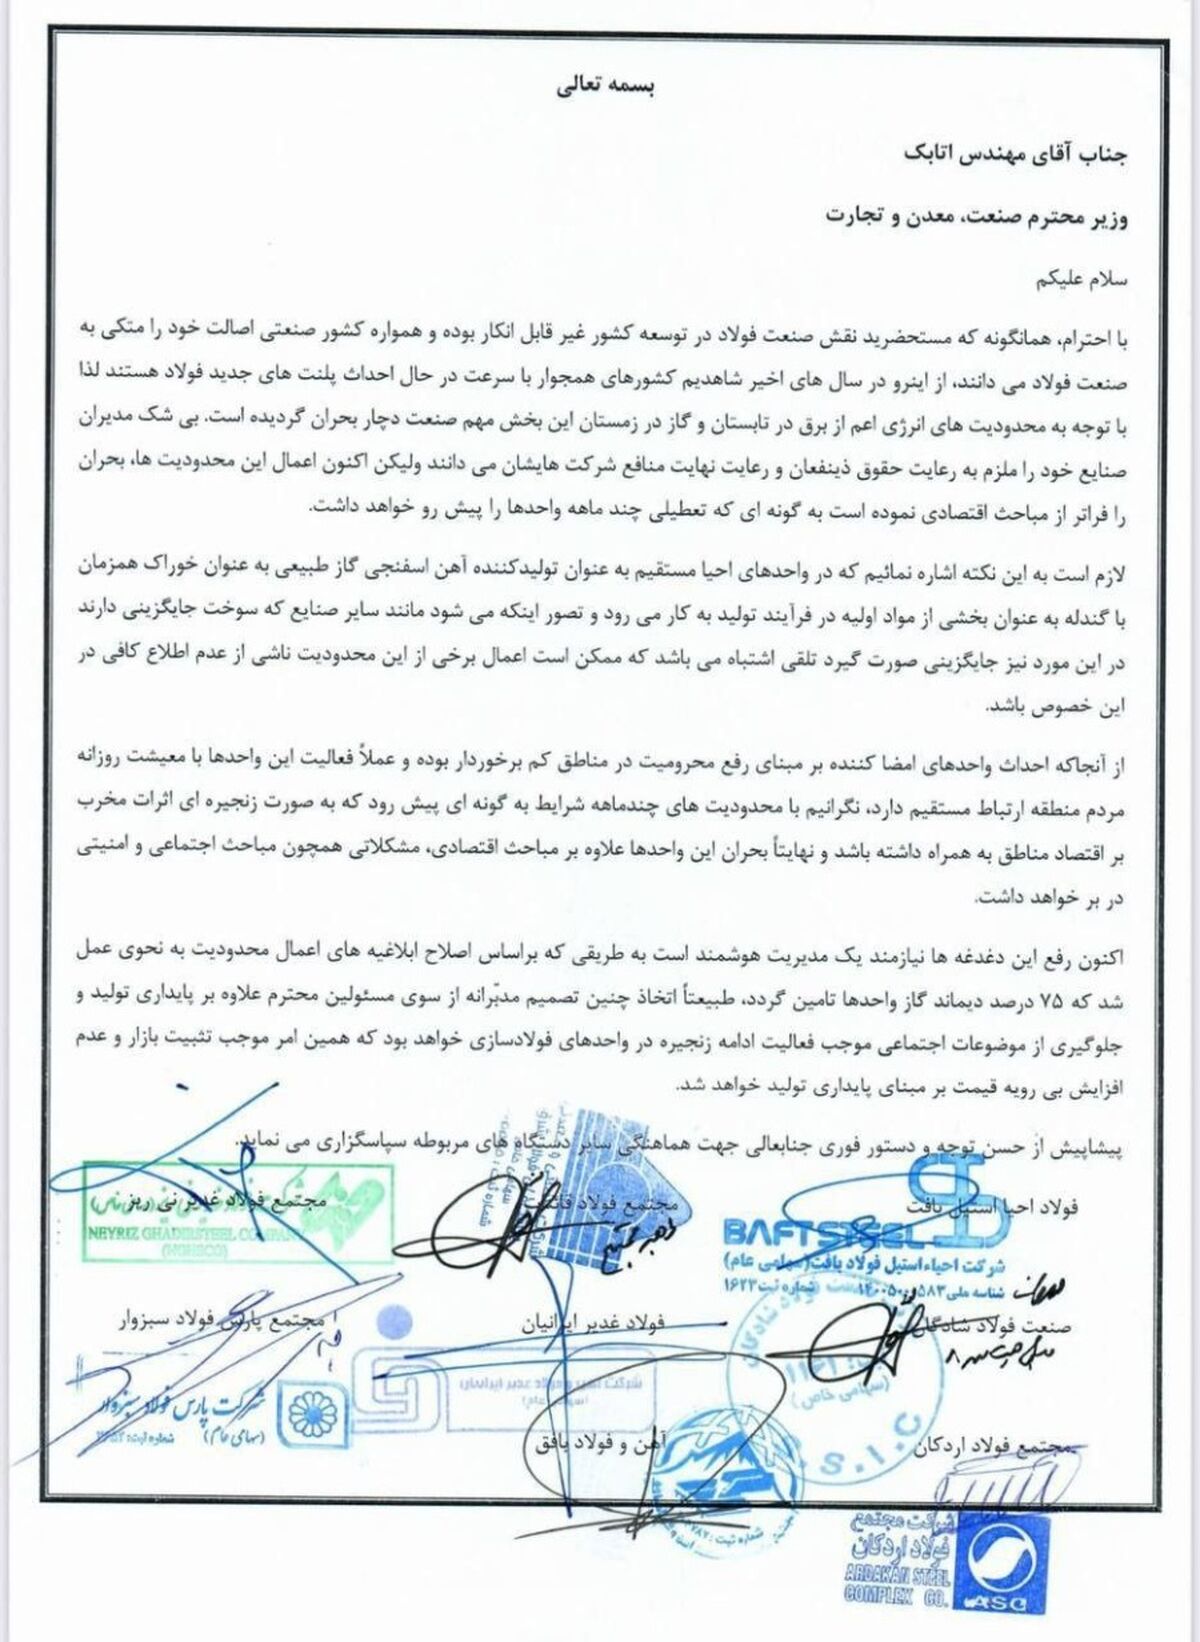 بسمه تعالی
جناب آقای مهندس اتابک
وزیر محترم صنعت، معدن و تجارت
سلام علیکم
با احترام، همانگونه که مستحضرید نقش صنعت فولاد در توسعه کشور غیر قابل انکار بوده و همواره کشور صنعتی اصالت خود را متکی به
صنعت فولاد می دانند، از اینرو در سال های اخیر شاهدیم کشورهای همجوار با سرعت در حال احداث پلنت های جدید فولاد هستند لذا
با توجه به محدودیت های انرژی اعم از برق در تابستان و گاز در زمستان این بخش مهم صنعت دچار بحران گردیده است. بی شک مدیران
صنایع خود را ملزم به رعایت حقوق ذینفعان و رعایت نهایت منافع شرکت هایشان می دانند ولیکن اکنون اعمال این محدودیت ها، بحران
را فراتر از مباحث اقتصادی نموده است به گونه ای که تعطیلی چند ماهه واحدها را پیش رو خواهد داشت.
لازم است به این نکته اشاره نمائیم که در واحدهای احیا مستقیم به عنوان تولیدکننده آهن اسفنجی گاز طبیعی به عنوان خوراک همزمان
با گندله به عنوان بخشی از مواد اولیه در فرآیند تولید به کار می رود و تصور اینکه می شود مانند سایر صنایع که سوخت جایگزینی دارند
در این مورد نیز جایگزینی صورت گیرد تلقی اشتباه می باشد که ممکن است اعمال برخی از این محدودیت ناشی از عدم اطلاع کافی در
این خصوص باشد.
از آنجاکه احداث واحدهای امضا کننده بر مبنای رفع محرومیت در مناطق کم برخوردار بوده و عملاً فعالیت این واحدها با معیشت روزانه
مردم منطقه ارتباط مستقیم دارد، نگرانیم با محدودیت های چندماهه شرایط به گونه ای پیش رود که به صورت زنجیره ای اثرات مخرب
بر اقتصاد مناطق به همراه داشته باشد و نهایتاً بحران این واحدها علاوه بر مباحث اقتصادی، مشکلاتی همچون مباحث اجتماعی و امنیتی
در بر خواهد داشت.
اکنون رفع این دغدغه ها نیازمند یک مدیریت هوشمند است به طریقی که براساس اصلاح ابلاغیه های اعمال محدودیت به نحوی عمل
شد که ۷۵ درصد دیماند گاز واحدها تامین گردد، طبیعتاً اتخاذ چنین تصمیم مدبّرانه از سوی مسئولین محترم علاوه بر پایداری تولید و
جلوگیری از موضوعات اجتماعی موجب فعالیت ادامه زنجیره در واحدهای فولادسازی خواهد بود که همین امر موجب تثبیت بازار و عدم
افزایش بی رویه قیمت بر مبنای پایداری تولید خواهد شد.
پیشاپیش از حسن توجه و دستور فوری جنابعالی جهت هماهنگی سایر دستگاه های مربوطه سپاسگزاری می نماید.
فولاد احیا استیل بافت
مجتمع فولاد قائنات
مجتمع فولاد غدیر نی ریز
BAFTSTEEL
شرکت احیاء استیل فولاد بافت(سهامی عام)
NEYRIZ GHADIR STEEL COMPANY
(NGHSCO)
صنعت فولاد شادگان
فولاد غدیر ایرانیان
مجتمع پارس فولاد سبزوار
(سهامی خاص)
S.I.C
شرکت پارس فولاد سبزوار
(سهامی عام)
مجتمع فولاد اردکان
آهن و فولاد بافق
شرکت مجتمع
فولاد اردکان
ARDAKAN STEEL
COMPLEX CO.
ASC